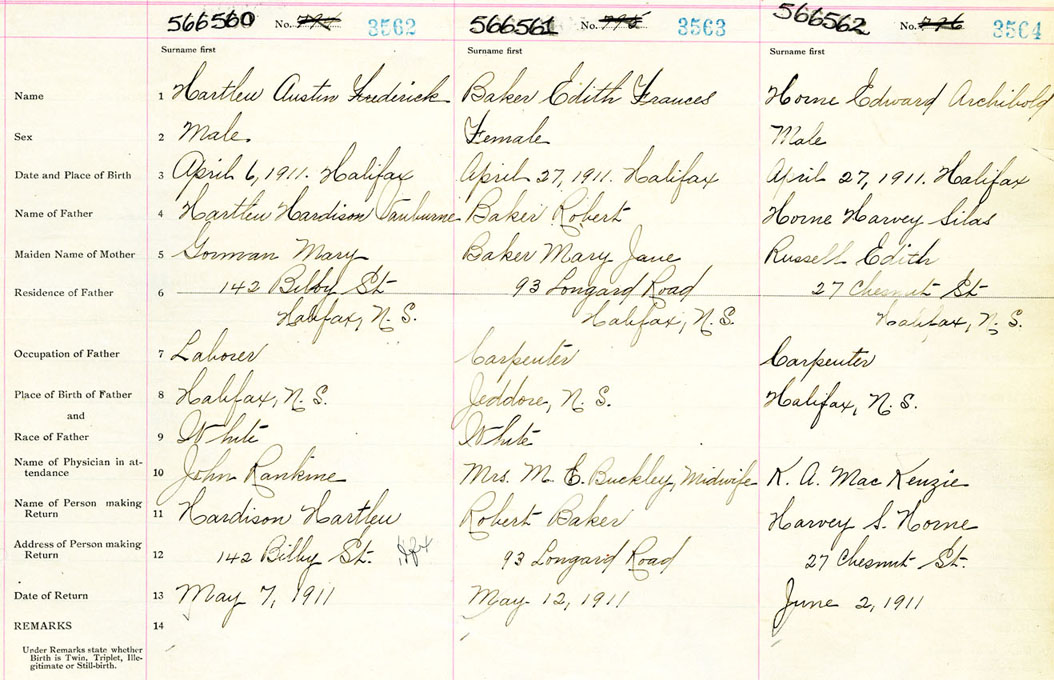 566560 No. 794 3562 566561 No. 795 3563 566562 No. 796 3564
Surname first Surname first Surname first
Name 1 Hartlen Austin Frederick Baker Edith Frances Horne Edward Archibold
Sex 2 Male. Female Male
Date and Place of Birth 3 April 6, 1911. Halifax April 27, 1911. Halifax April 27, 1911. Halifax
Name of Father 4 Hartlen Hardison Vanburne Baker Robert Horne Harvey Silas
Maiden Name of Mother 5 Gorman Mary Baker Mary Jane Russell Edith
Residence of Father 6 142 Bilby St 93 Longard Road 27 Chesnut St
Halifax, N. S. Halifax, N. S. Halifax, N. S.
Occupation of Father 7 Laborer Carpenter Carpenter
Place of Birth of Father 8 Halifax, N. S. Jeddore, N. S. Halifax, N. S.
and
Race of Father 9 White White
Name of Physician in at-
tendance 10 John Rankine Mrs. M. E. Buckley, Midwife K. A. MacKenzie
Name of Person making
Return 11 Hardison Hartlen Robert Baker Harvey S. Horne
Address of Person making
Return 12 142 Bilby St. Hfx 93 Longard Road 27 Chesnut St.
Date of Return 13 May 7, 1911 May 12, 1911 June 2, 1911
REMARKS 14
Under Remarks state whether
Birth is Twin, Triplet, Ille-
gitimate or Still-birth.